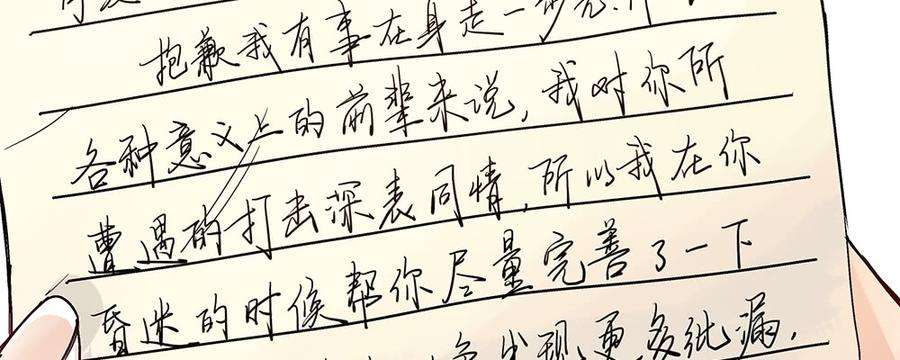 抱歉我有事在身走一步
各种意义上的前辈来说,我对你所
遭遇的打击深表同情,所以我在你
昏迷的时候帮你尽量完善了一下
发现更多纰漏,